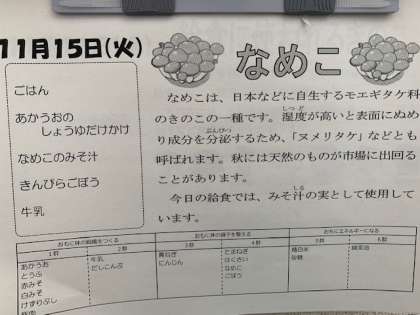 11月15日(火)
なめこ
ごはん
あかうおの
しょうゆだけかけ
なめこのみそ汁
きんぴらごぼう
牛乳
なめこは、日本などに自生するモエギタケ科
のきのこの一種です。湿度が高いと表面にぬめ
り成分を分泌するため、「ヌメリタケ」などとも
呼ばれます。秋には天然のものが市場に出回る
ことがあります。
今日の給食では、みそ汁の実として使用して
います。
おもに体の組織をつくる
おもに体の調子を整える
おもにエネルギーになる
1群
2群
3群
4群
5群
6群
あかうお
とうふ
赤みそ
白みそ
けずりぶし
牛乳
だしこんぶ
にんじん
たまねぎ
はくさい
なめこ
ごぼう
精白米
砂糖